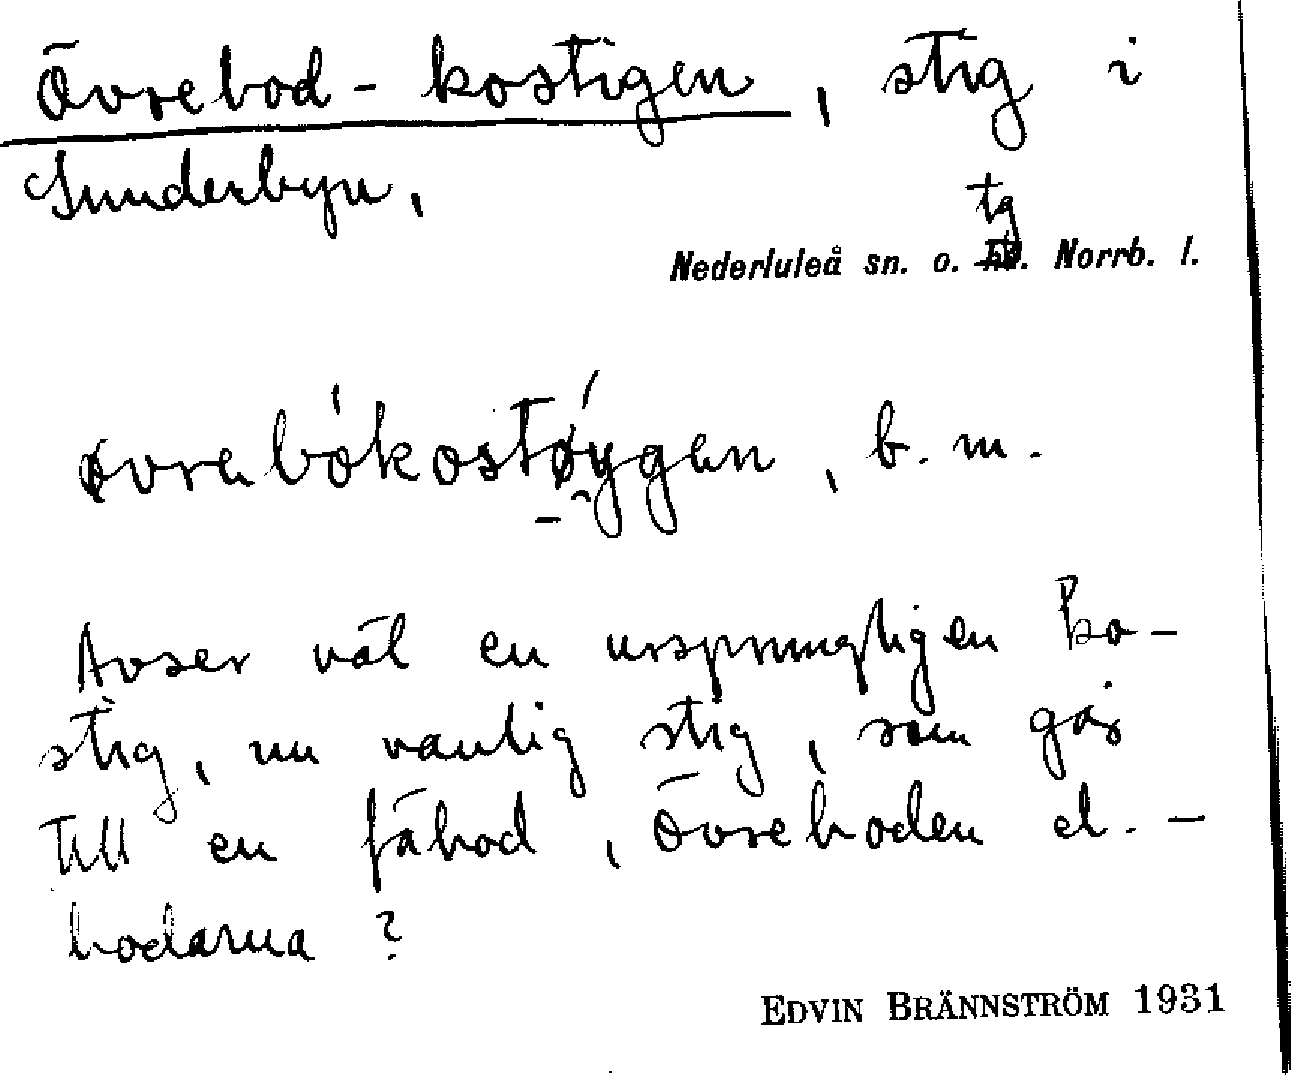 Övrebod-kostigen, stig i
Sunderbyn,
tg
Nederluleå sn. o. hd. Norrb. l.
øvrebòkostǿygen, b. m.
Avser väl en ursprungligen ko-
stig, nu vanlig stig, som går
till en fäbod, Övreboden el. -
bodarna?
EDVIN BRÄNNSTRÖM 1931